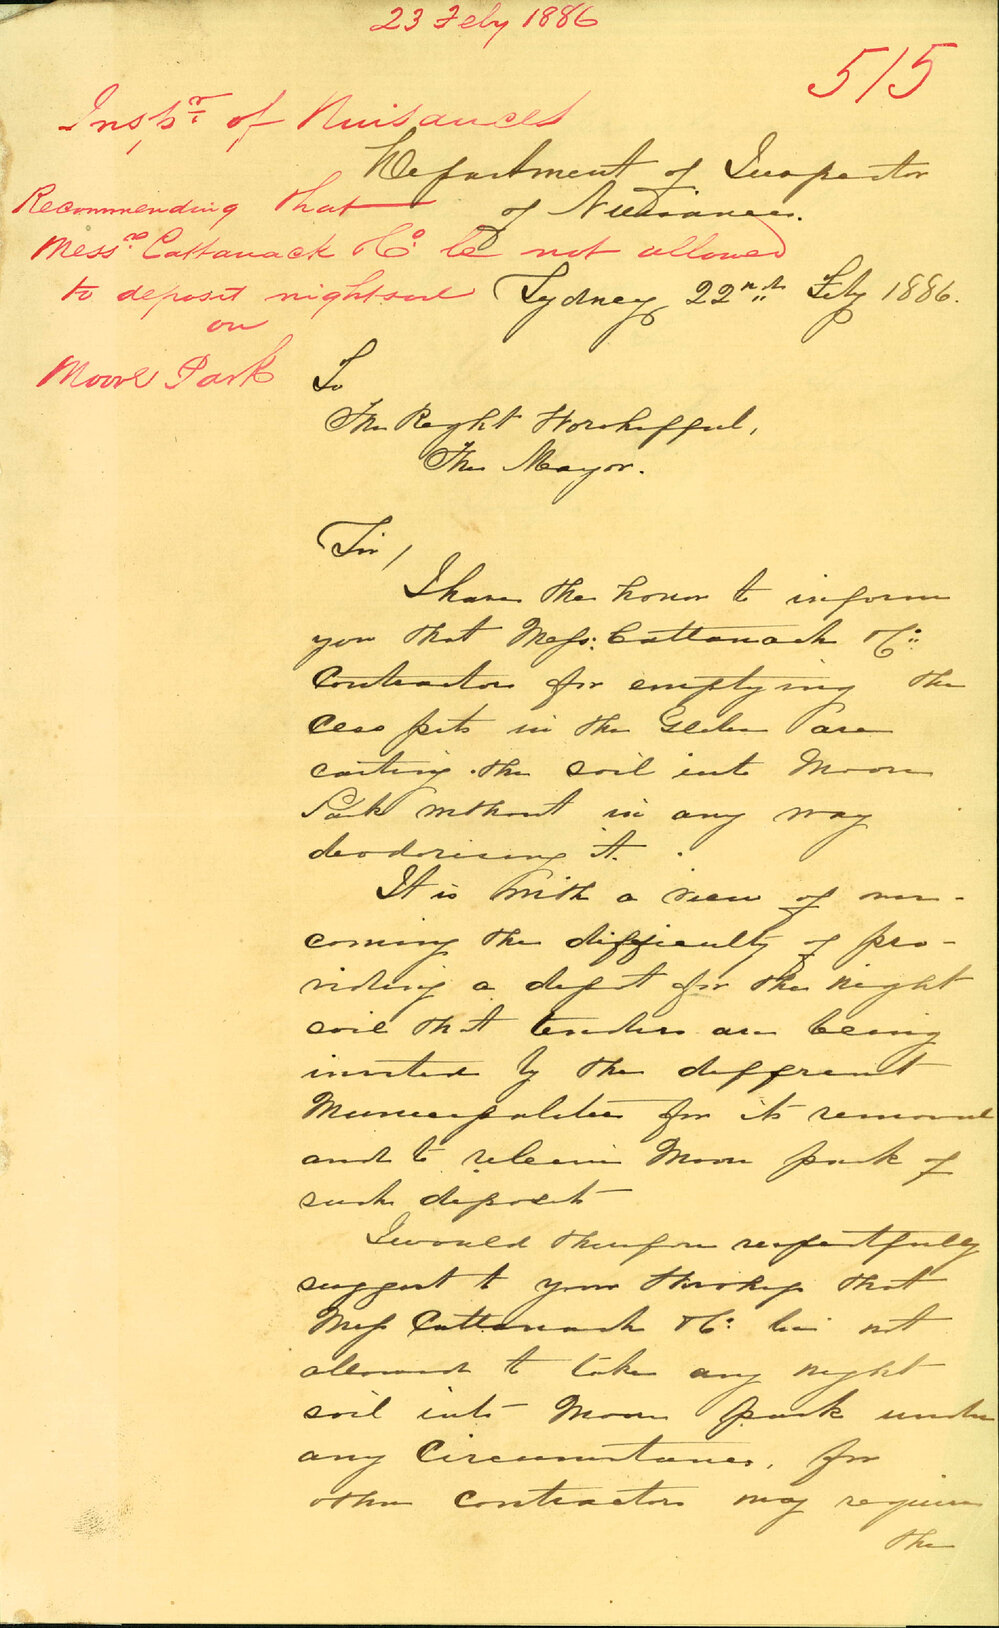 23 Feby 1886
515
Inspr. of Nuisances
Recommending that
Messrs. Cattanack & Co. be not allowed
to deposit nightsoil
on
Moore Park
Department of Inspector
of Nuisances.
Sydney, 22nd Feby 1886.
To
The Right Worshipful,
The Mayor.
Sir,
I have the honor to inform
you that Mess: Cattanach & Co:
Contractors for emptying the
cess pits in the Glebe are
carting the soil into Moore
Park without in any way
deodorising it.
It is with a view of over-
coming the difficulty of pro-
viding a depot for the night
soil that tenders are being
invited by the different
Municipalities for its removal
and to releive Moore park of
such deposit
I would therefore respectfully
suggest to your Worship that
Mess Cattanach & Co: be not
allowed to take any night
soil into Moore park under
any Circumstances, for
other contractors may require
the